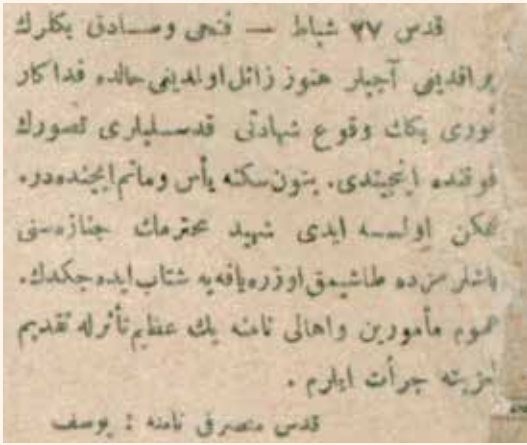 قدس ٢٧ شباط — فتحی وصادق بكلرك
براقدیغی آجیلر هنوز زائل اولمدیغی حالده فداكار
نوری بكك وقوع شهادتی قدسلیلری تصورك
فوقنده اینجیتدی. بتون سكنه یأس وماتم ایچنده‌در.
ممكن اولسه ایدی شهید محترمك جنازه‌سنی
باشلرمزده طاشیمق اوزره یافه‌یه شتاب ایده‌جكدك.
عموم مأمورین واهالی نامنه پك عظیم تأثرله تقدیم
تعزیته جرأت ایلرم .
قدس متصرفی نامنه : یوسف